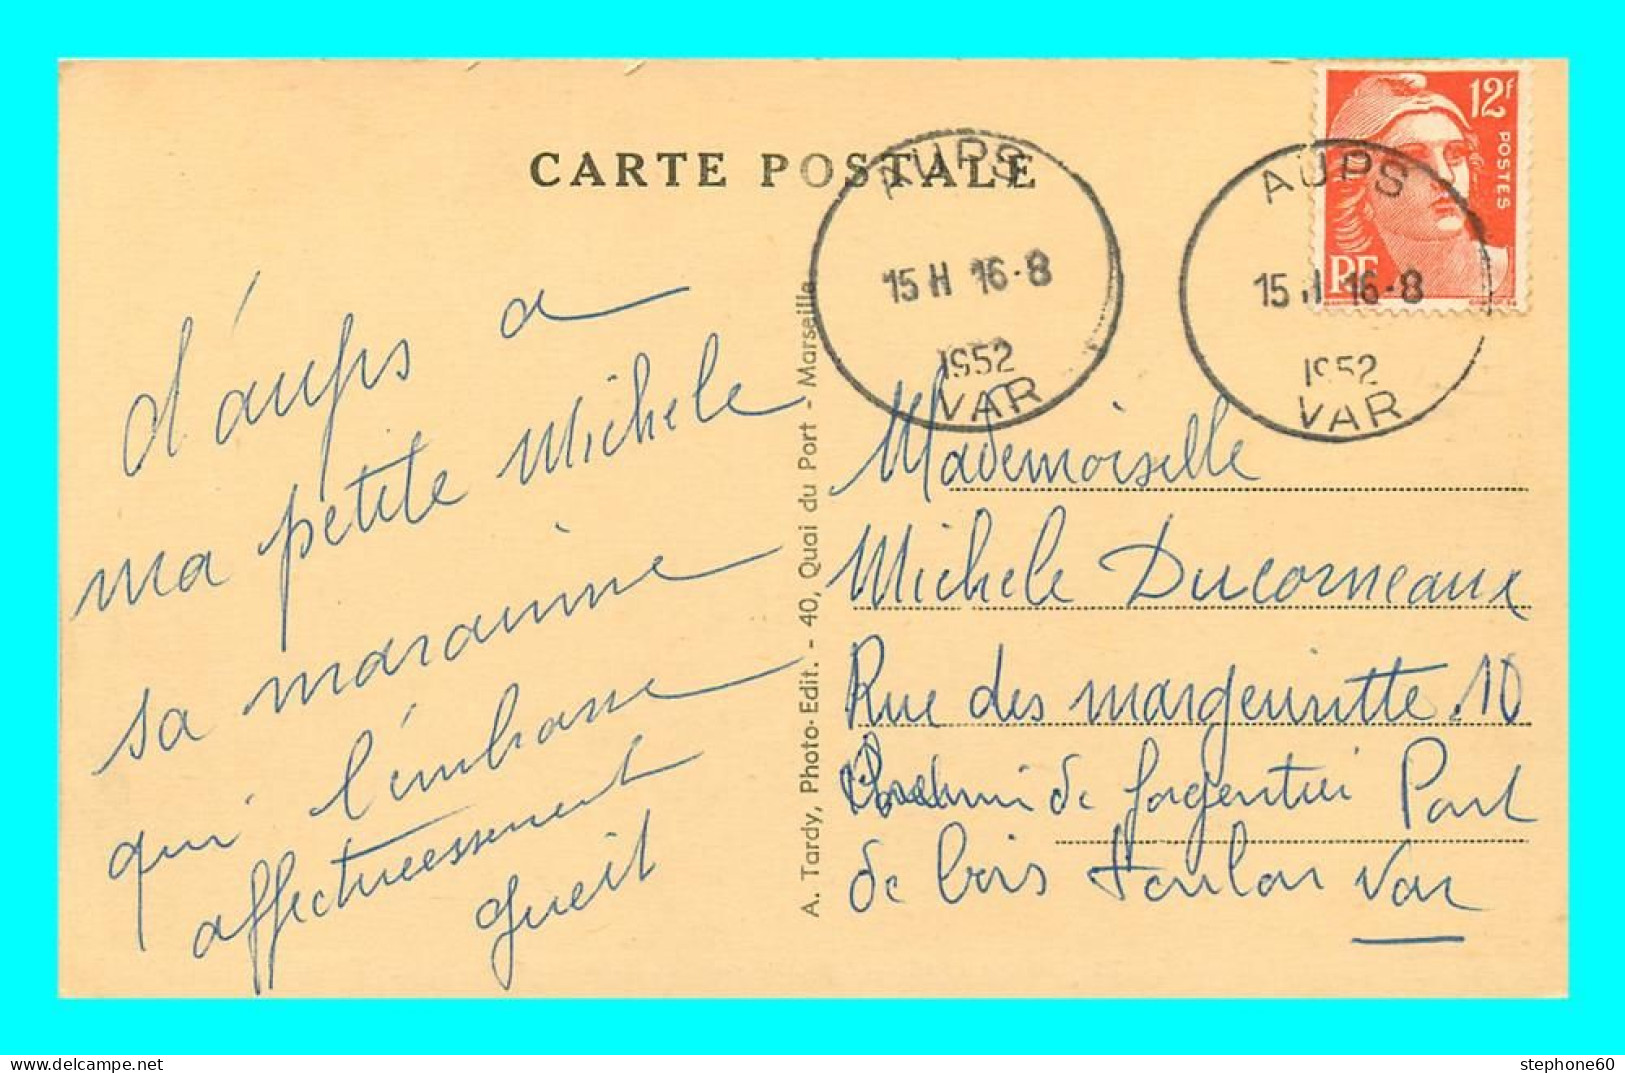 CARTE POSTALE
AUPS
15 H 16-8
1952
VAR
AUPS
15 H 16-8
1952
VAR
12F
POSTES
RF
d'aups a
ma petite Michele
sa maraine
qui l'embrasse
affectueessement
A. Tardy, Photo-Edit. - 40, Quai du Port - Marseille
Mademoiselle
Michele Ducorneaux
Rue des margeuritte 10
de Pont
de bois Toulon Var
stephone60